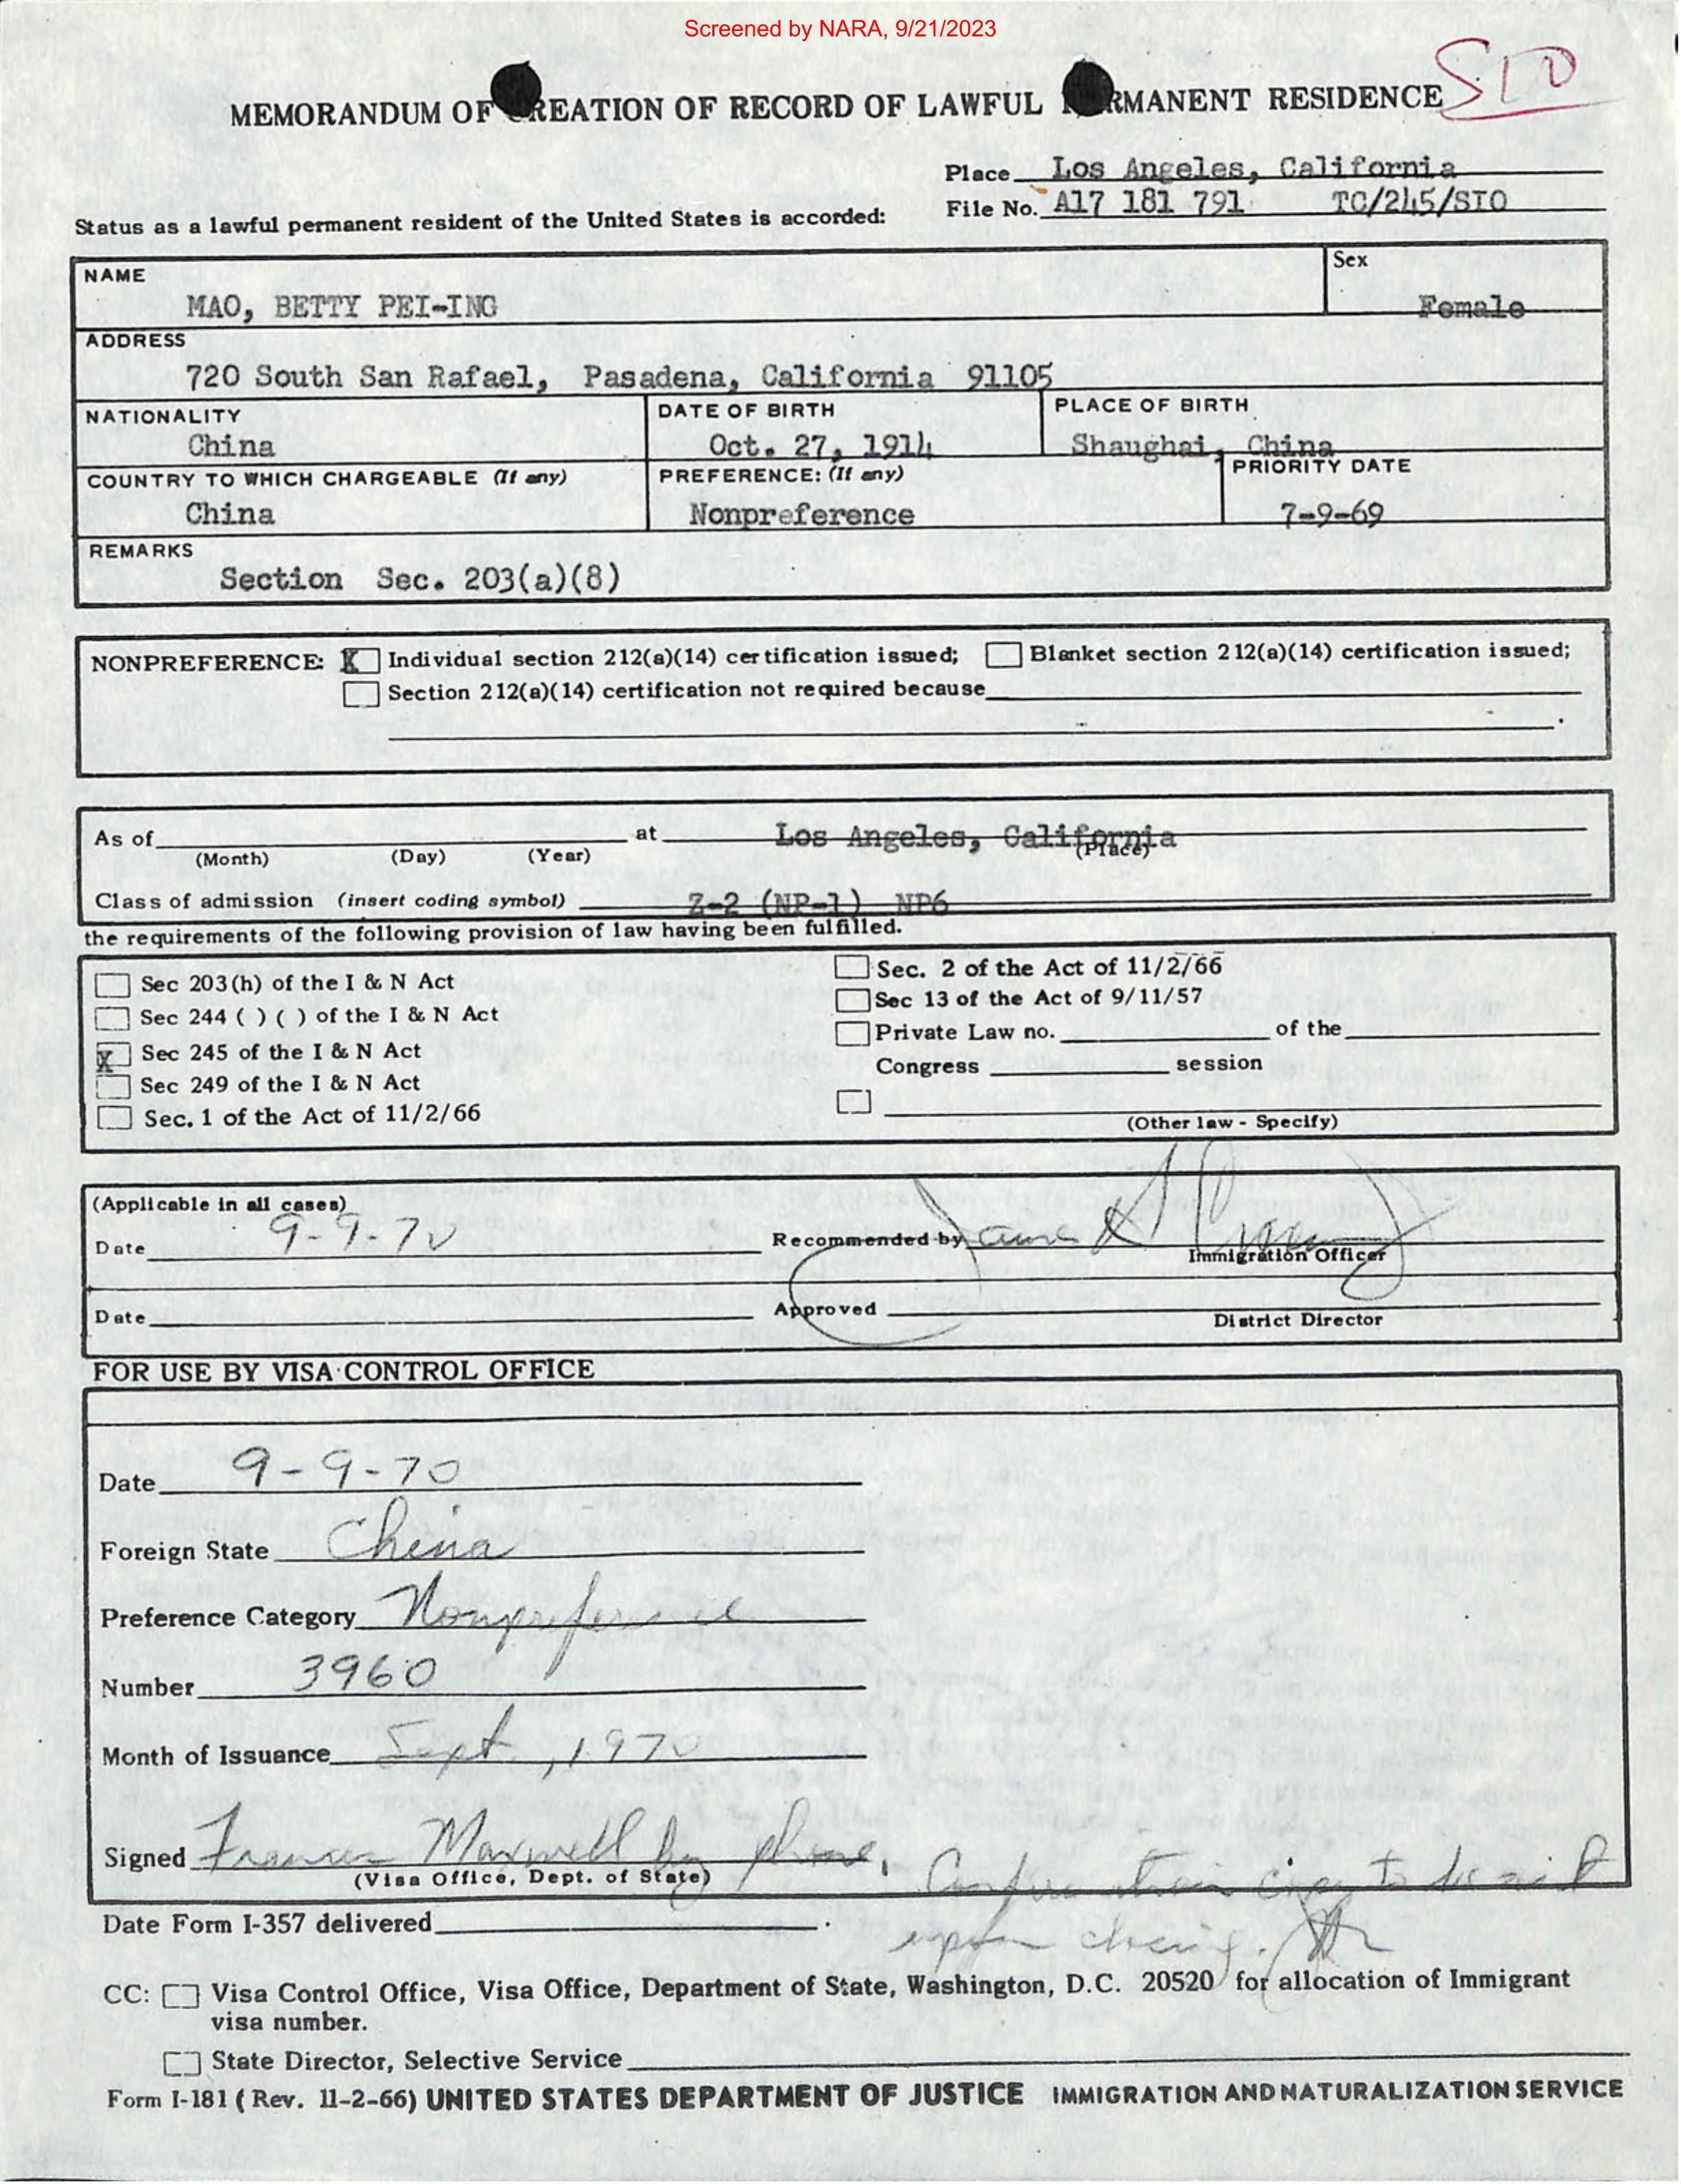 Screened by NARA, 9/21/2023
MEMORANDUM OF CREATION OF RECORD OF LAWFUL PERMANENT RESIDENCE
Place Los Angeles, California
File No. A17 181 791 TC/245/STO
Status as a lawful permanent resident of the United States is accorded:
NAME Sex
MAO, BETTY PEI-ING Female
ADDRESS
720 South San Rafael, Pasadena, California 91105
NATIONALITY DATE OF BIRTH PLACE OF BIRTH
China Oct. 27, 1914 Shaughai, China
COUNTRY TO WHICH CHARGEABLE (If any) PREFERENCE: (If any) PRIORITY DATE
China Nonpreference 7-9-69
REMARKS
Section Sec. 203(a)(8)
NONPREFERENCE: X Individual section 212(a)(14) certification issued; Blanket section 212(a)(14) certification issued;
Section 212(a)(14) certification not required because
As of at Los Angeles, California
(Month) (Day) (Year) (Place)
Class of admission (insert coding symbol) Z-2 (NP-1) NP6
the requirements of the following provision of law having been fulfilled.
Sec 203(h) of the I & N Act
Sec 244 ( ) ( ) of the I & N Act
X Sec 245 of the I & N Act
Sec 249 of the I & N Act
Sec. 1 of the Act of 11/2/66
Sec. 2 of the Act of 11/2/66
Sec 13 of the Act of 9/11/57
Private Law no. of the
Congress session
(Other law - Specify)
(Applicable in all cases)
Date 9-9-70 Recommended by
Immigration Officer
Date Approved
District Director
FOR USE BY VISA CONTROL OFFICE
Date 9-9-70
Foreign State China
Preference Category Nonpreference
Number 3960
Month of Issuance Sept., 1970
Signed Frances Maxwell by phone.
(Visa Office, Dept. of State)
Date Form I-357 delivered .
upon
CC: Visa Control Office, Visa Office, Department of State, Washington, D.C. 20520 for allocation of Immigrant
visa number.
State Director, Selective Service
Form I-181 (Rev. 11-2-66) UNITED STATES DEPARTMENT OF JUSTICE IMMIGRATION AND NATURALIZATION SERVICE